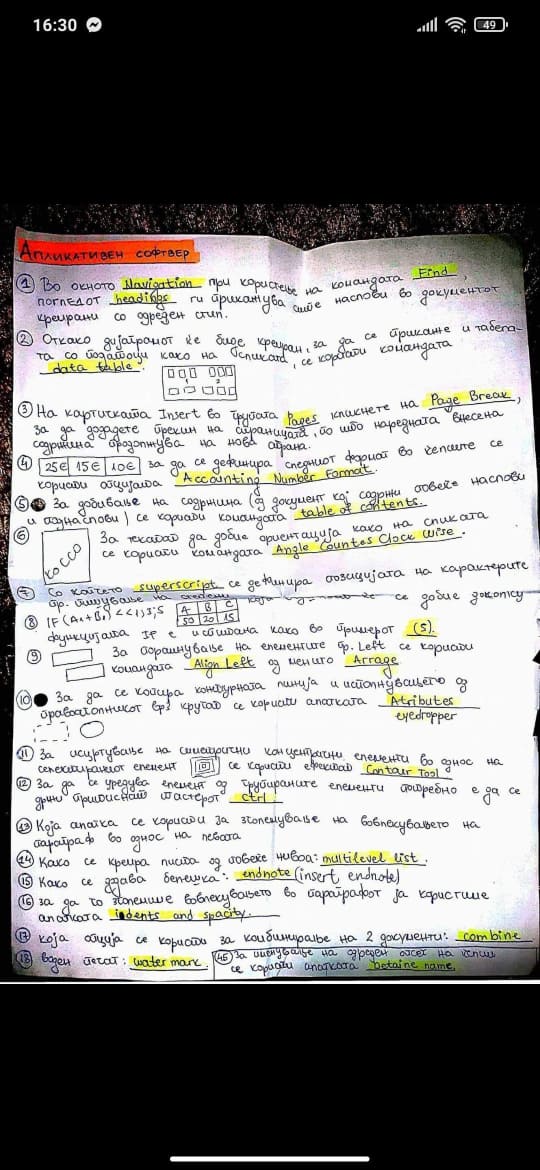 16:30
49
АПЛИКАТИВЕН СОФТВЕР
① Во окното Navigation при користење на командата Find,
погледот headings ги прикажува сите наслови во документот
креирани со одреден стил.
② Откако дијаграмот ќе биде креиран, за да се прикаже и табела-
та со податоци како на сликата, се користи командата
data table.
③ На картичката Insert во групата Pages кликнете на Page Break,
за да додадете прекин на страницата, по што наредната внесена
содржина продолжува на нова страна.
④ 25€ 15€ 10€ за да се дефинира следниот формат во келиите се
користи опцијата Accounting Number Format.
⑤ За добивање на содржина (од документ кој содржи повеќе наслови
и поднаслови) се користи командата table of contents.
⑥ За текстот да добие ориентација како на сликата
се користи командата Angle Countes Clock Wise.
КО ССО
⑦ Со копчето superscript се дефинира позицијата на карактерите
пр. пишување на степени
се добие доколку
⑧ IF(A1+B1)<<1;3;5 A B C
50 20 15
функцијата IF е испишана како во примерот (5).
⑨ За порамнување на елементите пр. Left се користи
командата Align Left од менито Arrage.
⑩ За да се копира контурната линија и исполнувањето од
правоаголникот врз кругот се користи алатката Atributes
eyedropper
⑪ За исцртување на симетрични концентрични елементи во однос на
селектираниот елемент се користи ефектот Contour Tool
⑫ За да се уредува елемент од групираните елементи потребно е да се
држи притиснат тастерот ctrl.
⑬ Која алатка се користи за зголемување на вовлекувањето на
параграф во однос на левата
⑭ Како се креира листа од повеќе нивоа: multilevel list.
⑮ Како се додава белешка: endnote (insert endnote)
⑯ за да го зголемиме вовлекувањето во параграфот ја користиме
алатката indents and spacity.
⑰ која опција се користи за комбинирање на 2 документи: combine
⑱ воден печат: water mark.
㊺ За именување на одреден опсег на ќелии
се користи алатката Detaine name.